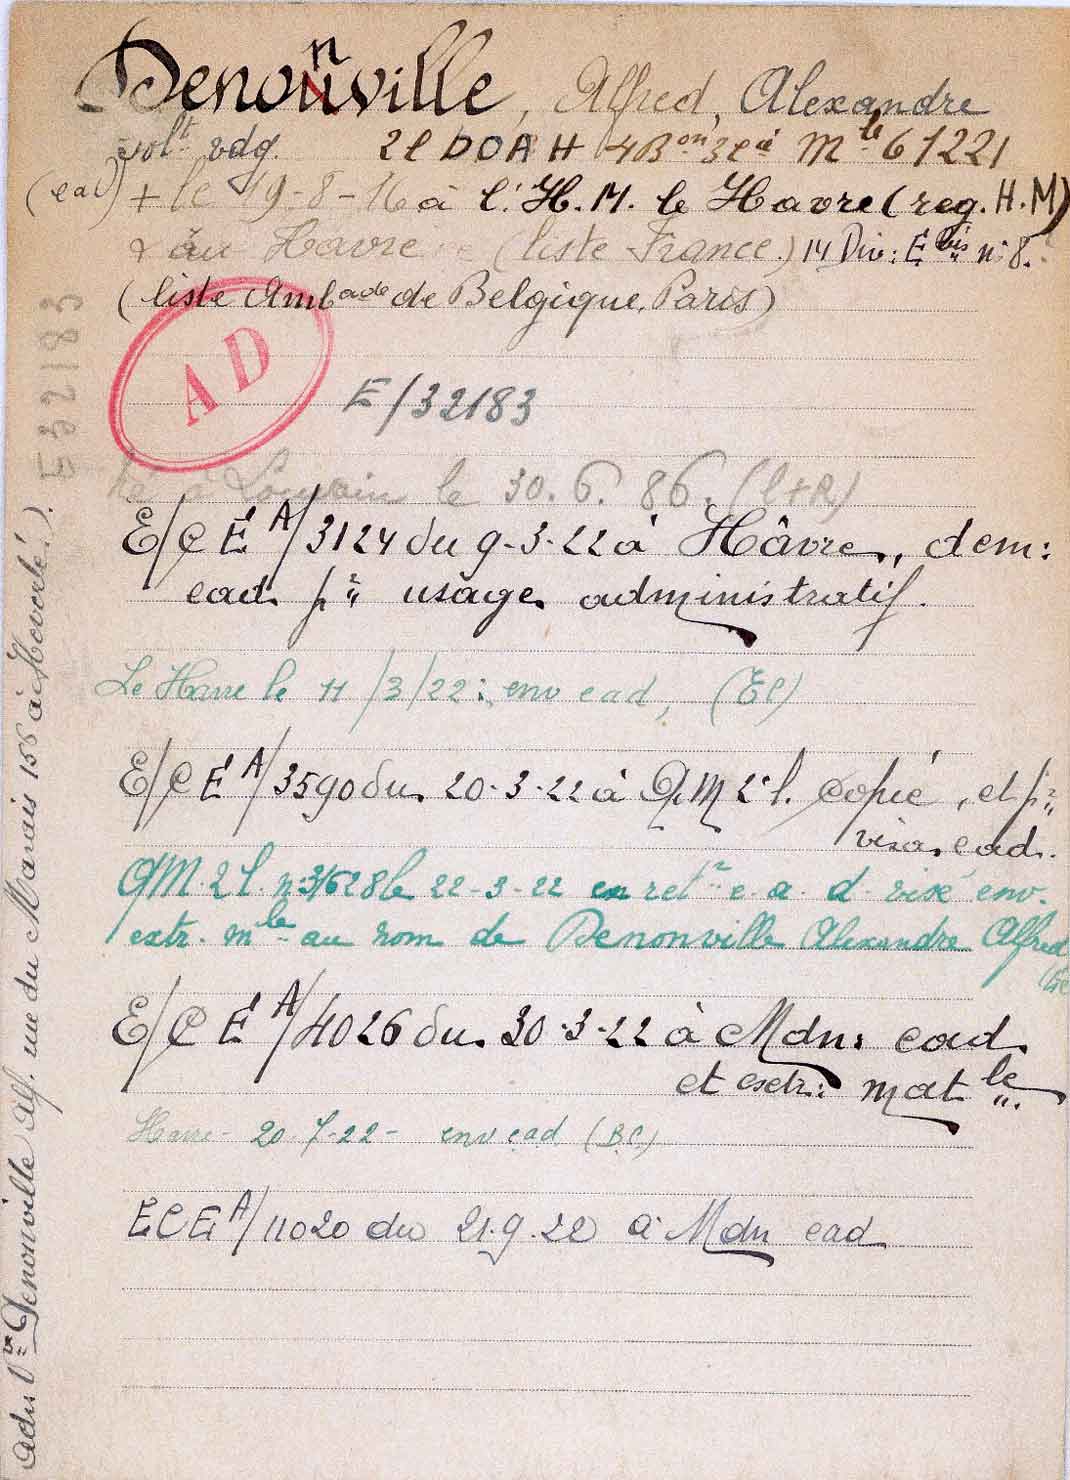 n
Denonville, Alfred, Alexandre
volt vdg. 2e DOAH 4Bon 3e Cie Mle 61221
(ead) + le 19-8-16 à l'H.M. le Havre (reg. H.M)
+ au Havre (liste France.) 14 Div: E bis n: 8.
(liste Ambade de Belgique, Paris)
AD
E/32183
né à Louvain le 30.6.86. (l+R)
E/CEA/3124 du 9-3-22 à Hâvre, dem:
ead. pr usage administratif.
Le Havre le 11/3/22: env ead, (EC)
E/CEA/3590 du 20-3-22 à QM 2e l. copie, et pr
visa ead.
QM. 2 l. n: 3/628 le 22-3-22 en ret e. a. d. visé env.
extr. mle au nom de Denonville Alexandre Alfred
E/CEA/4026 du 30-3-22 à Mdn: ead
et extr: matle
Havre - 20-7-22 - env ead (B.C.)
ECEA/11020 du 21.9.22 à Mdn ead
E32183
Denonville Alf. rue du Marais 156 à